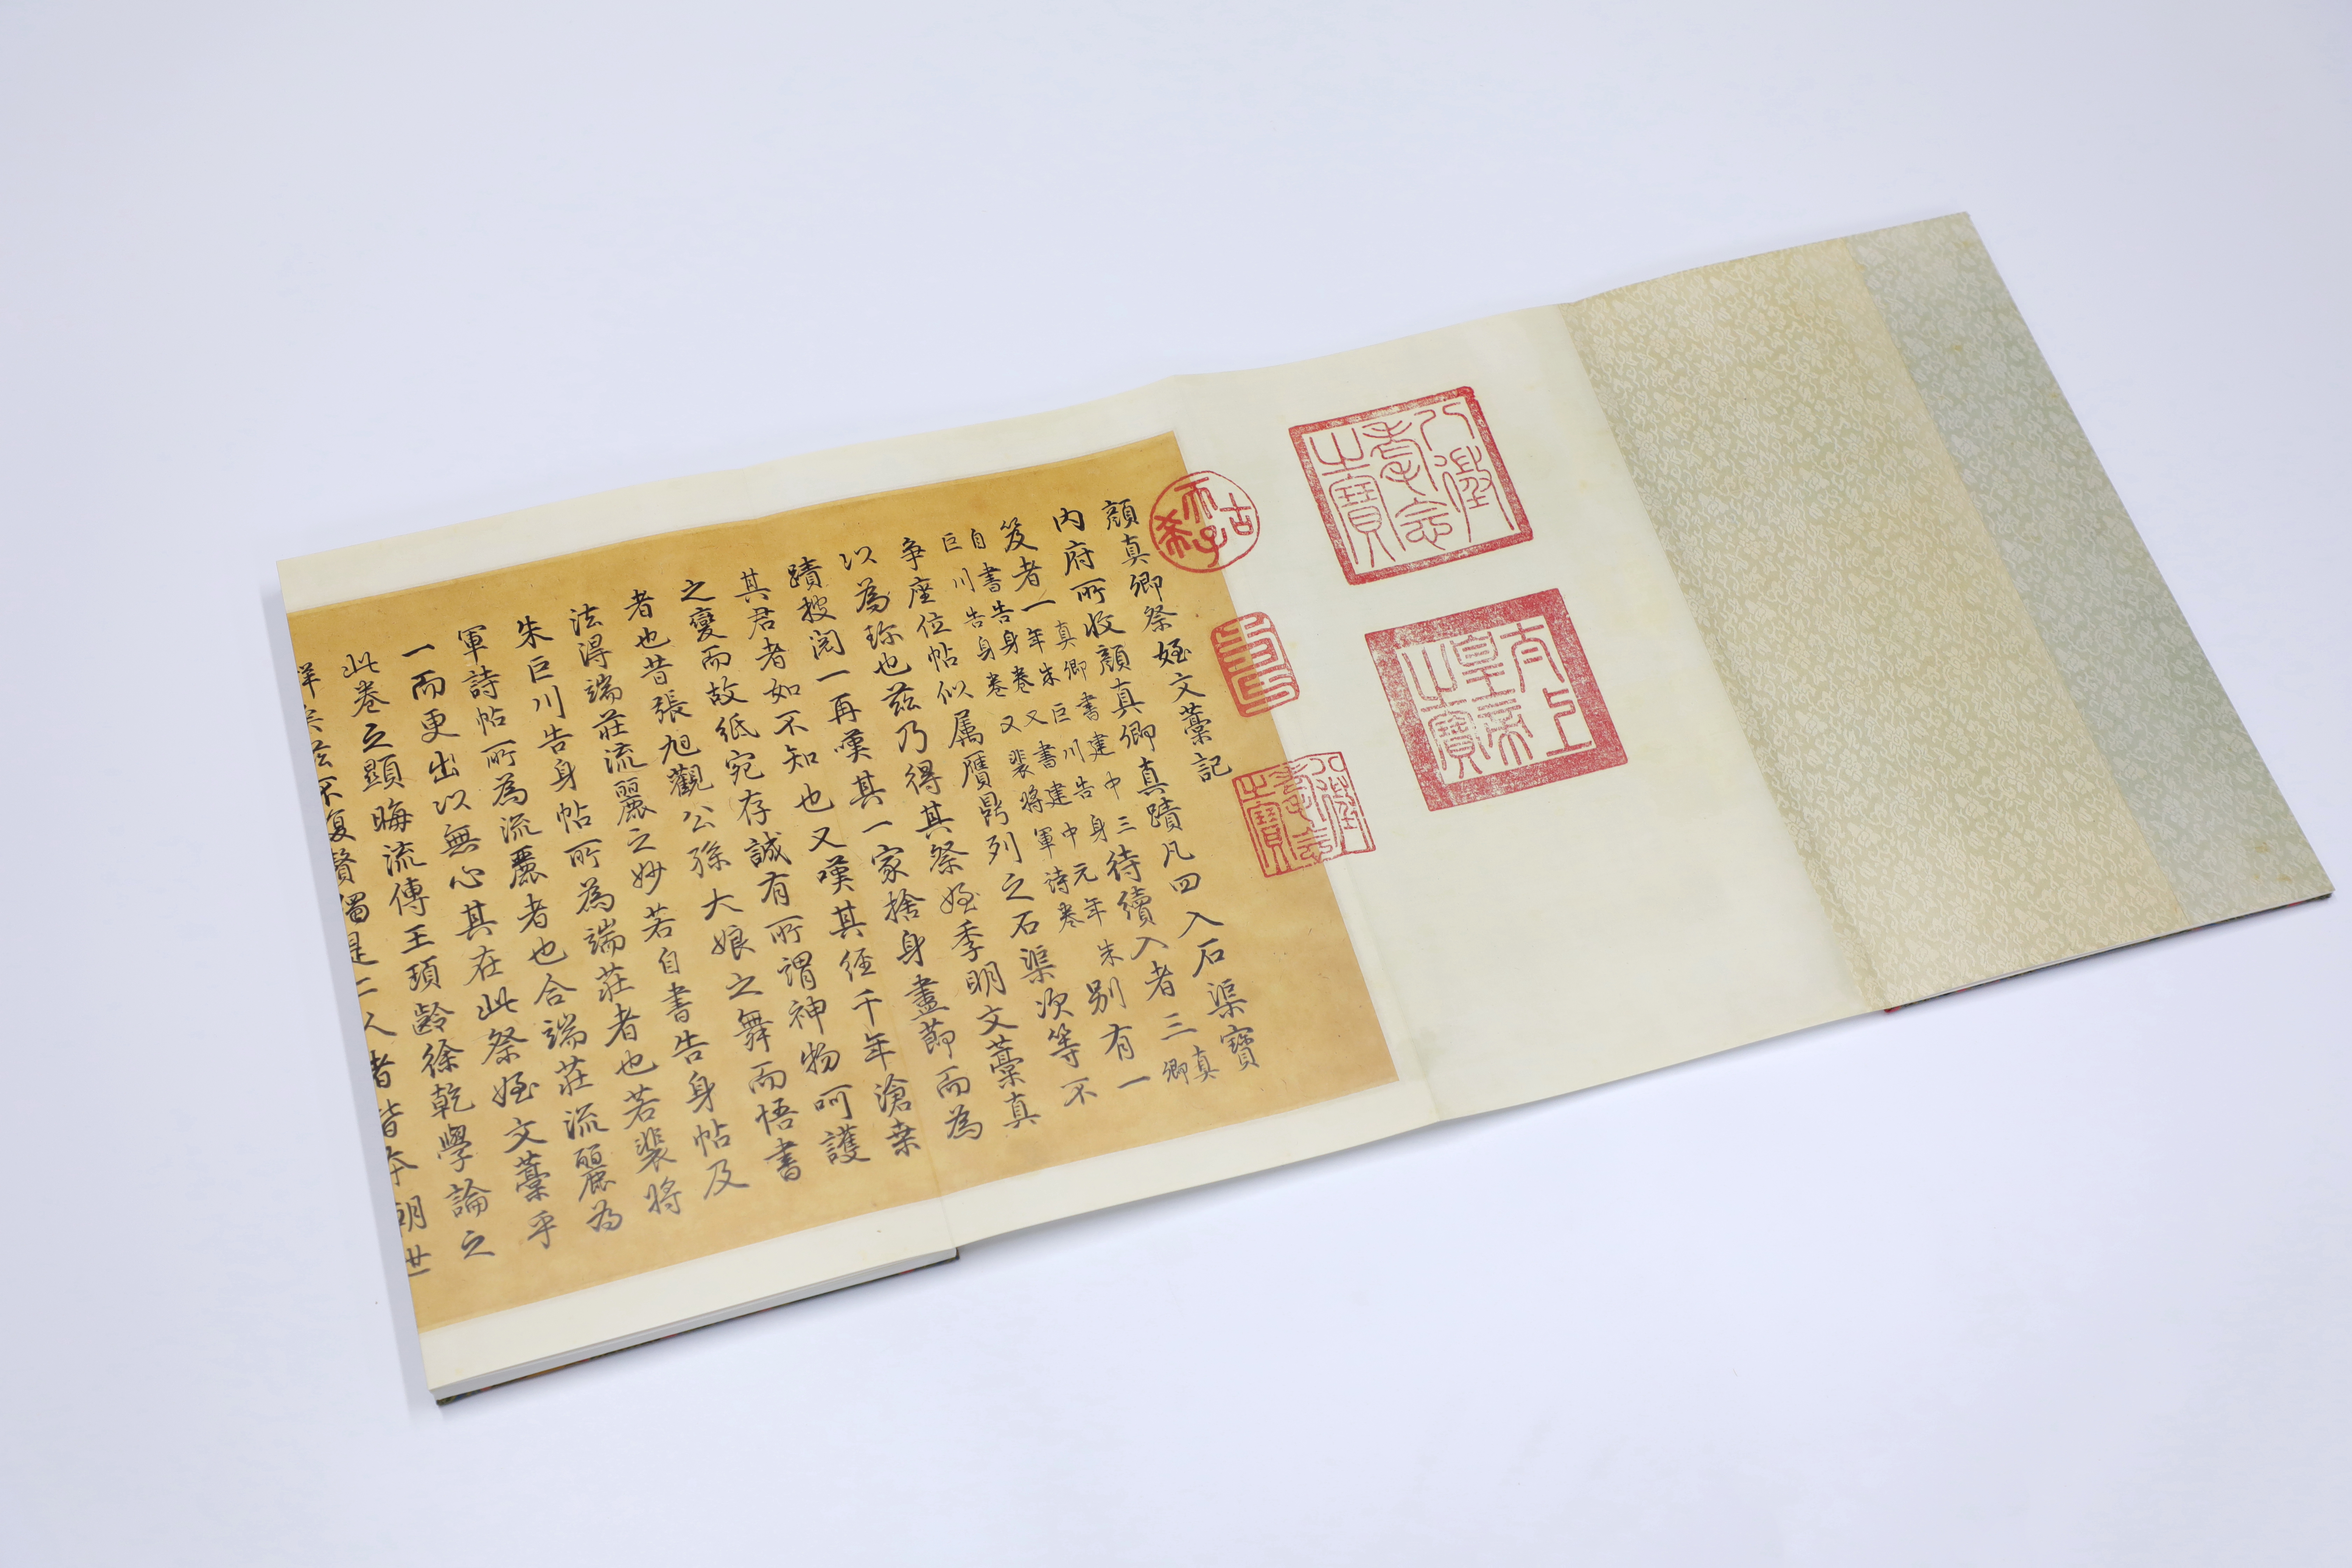 八徵耄念之寶
太上皇帝之寶
古希天子
壽
八徵耄念之寶
顏真卿祭姪文藁記
內府所收顏真卿真蹟凡四入石渠寶
笈者一真卿書建中三年朱巨川告身待續入者三真卿
自書告身卷又書建中元年朱巨川告身卷又裴將軍詩卷別有一
爭座位帖似属贋鼎列之石渠次等不
以為珎也茲乃得其祭姪季明文藁真
蹟搜閱一再嘆其一家捨身盡莭而為
其君者如不知也又嘆其經千年滄桒
之變而故紙宛存誠有所謂神物呵護
者也昔張旭觀公孫大娘之舞而悟書
法得端莊流麗之妙若自書告身帖及
朱巨川告身帖所為端莊者也若裴將
軍詩帖所為流麗者也合端莊流麗為
一而更出以無心其在此祭姪文藁乎
此卷之顯晦流傳王頊齡徐乾學論之
詳矣茲不復贅獨是二人者皆本朝世